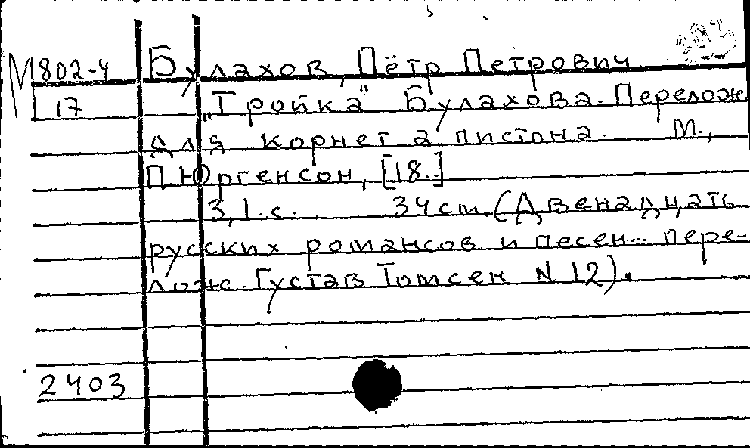 М 802-4 Булахов, Пётр Петрович
17 „Тройка" Булахова. Перелож.
для корнет а пистона. М.,
П. Юргенсон, [18.]
3, 1 с. 34 см. (Двенадцать
русских романсов и песен... пере-
лож. Густав Томсен N 12).
2403